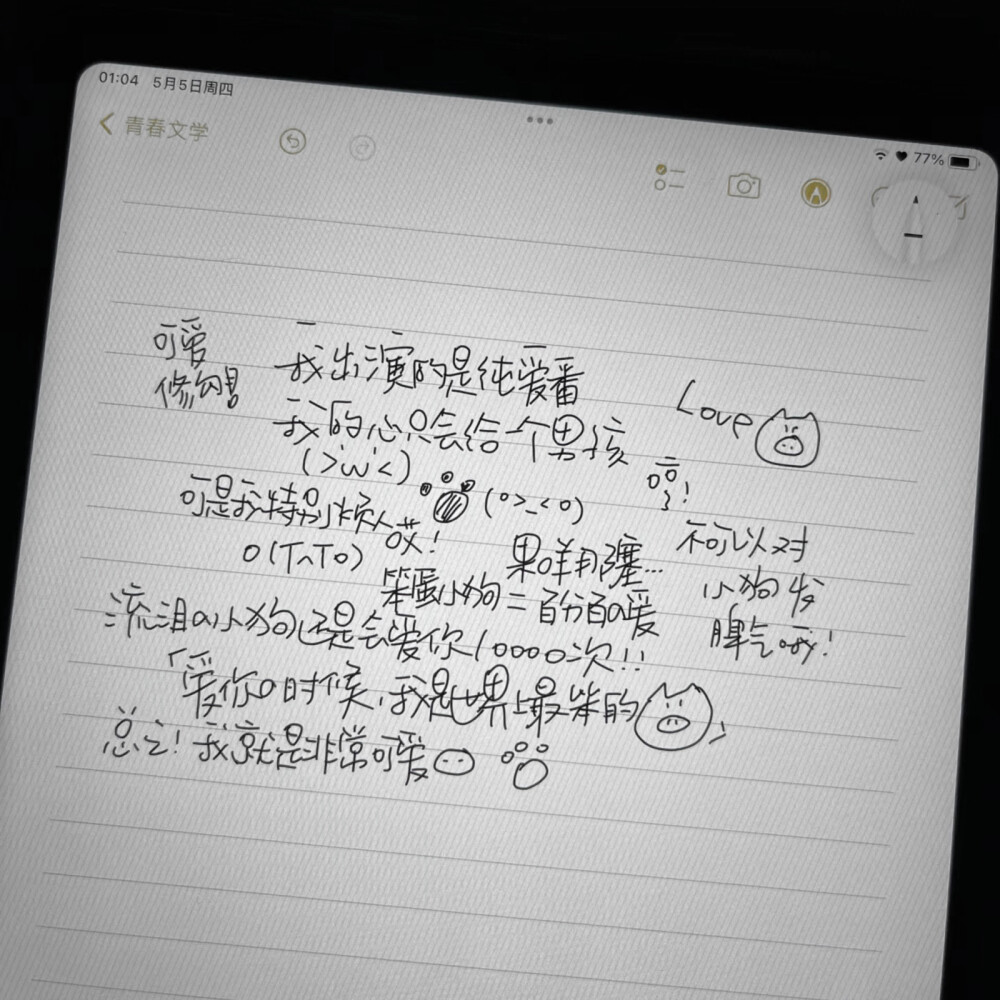 01:04 5月5日周四
77%
青春文学
可爱
修勾!
我出演的是纯爱番
我的心只会给一个男孩
Love
(>'ω'<)
(o>_<o)
哼!
可是我特别烦人哎!
o(T^To)
呆咩那塞...
不可以对
小狗发
脾气哦!
笨蛋小狗=百分百a爱
流泪a小狗还是会爱你10000次!!
「爱你0时候,我是世界上最笨的
」
总之!我就是非常可爱